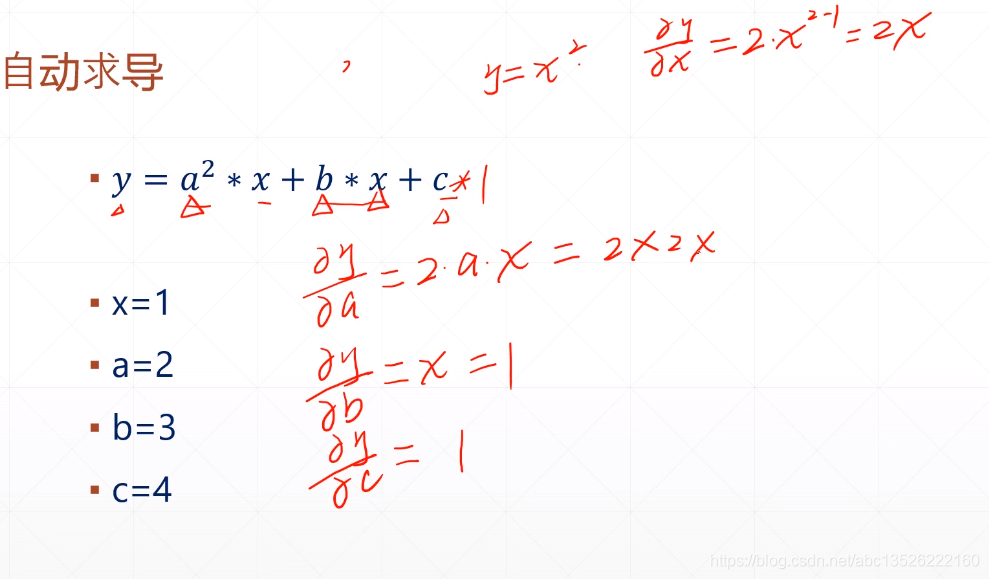 y=x² ∂y/∂x = 2·x²⁻¹ = 2x
自动求导
▪ y = a² ∗ x + b ∗ x + c * 1
∂y/∂a = 2·a·x = 2×2×
▪ x=1
▪ a=2
∂y/∂b = x = 1
▪ b=3
∂y/∂c = 1
▪ c=4
https://blog.csdn.net/abc13526222160